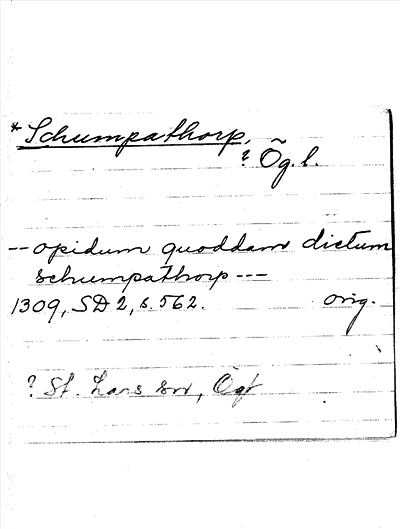 *Schumpathorp,
? Ög.l.
-- opidum quoddam dictum
schumpathorp ---
1309, SD 2, s. 562. orig.
? St. Lars sn, Ögl